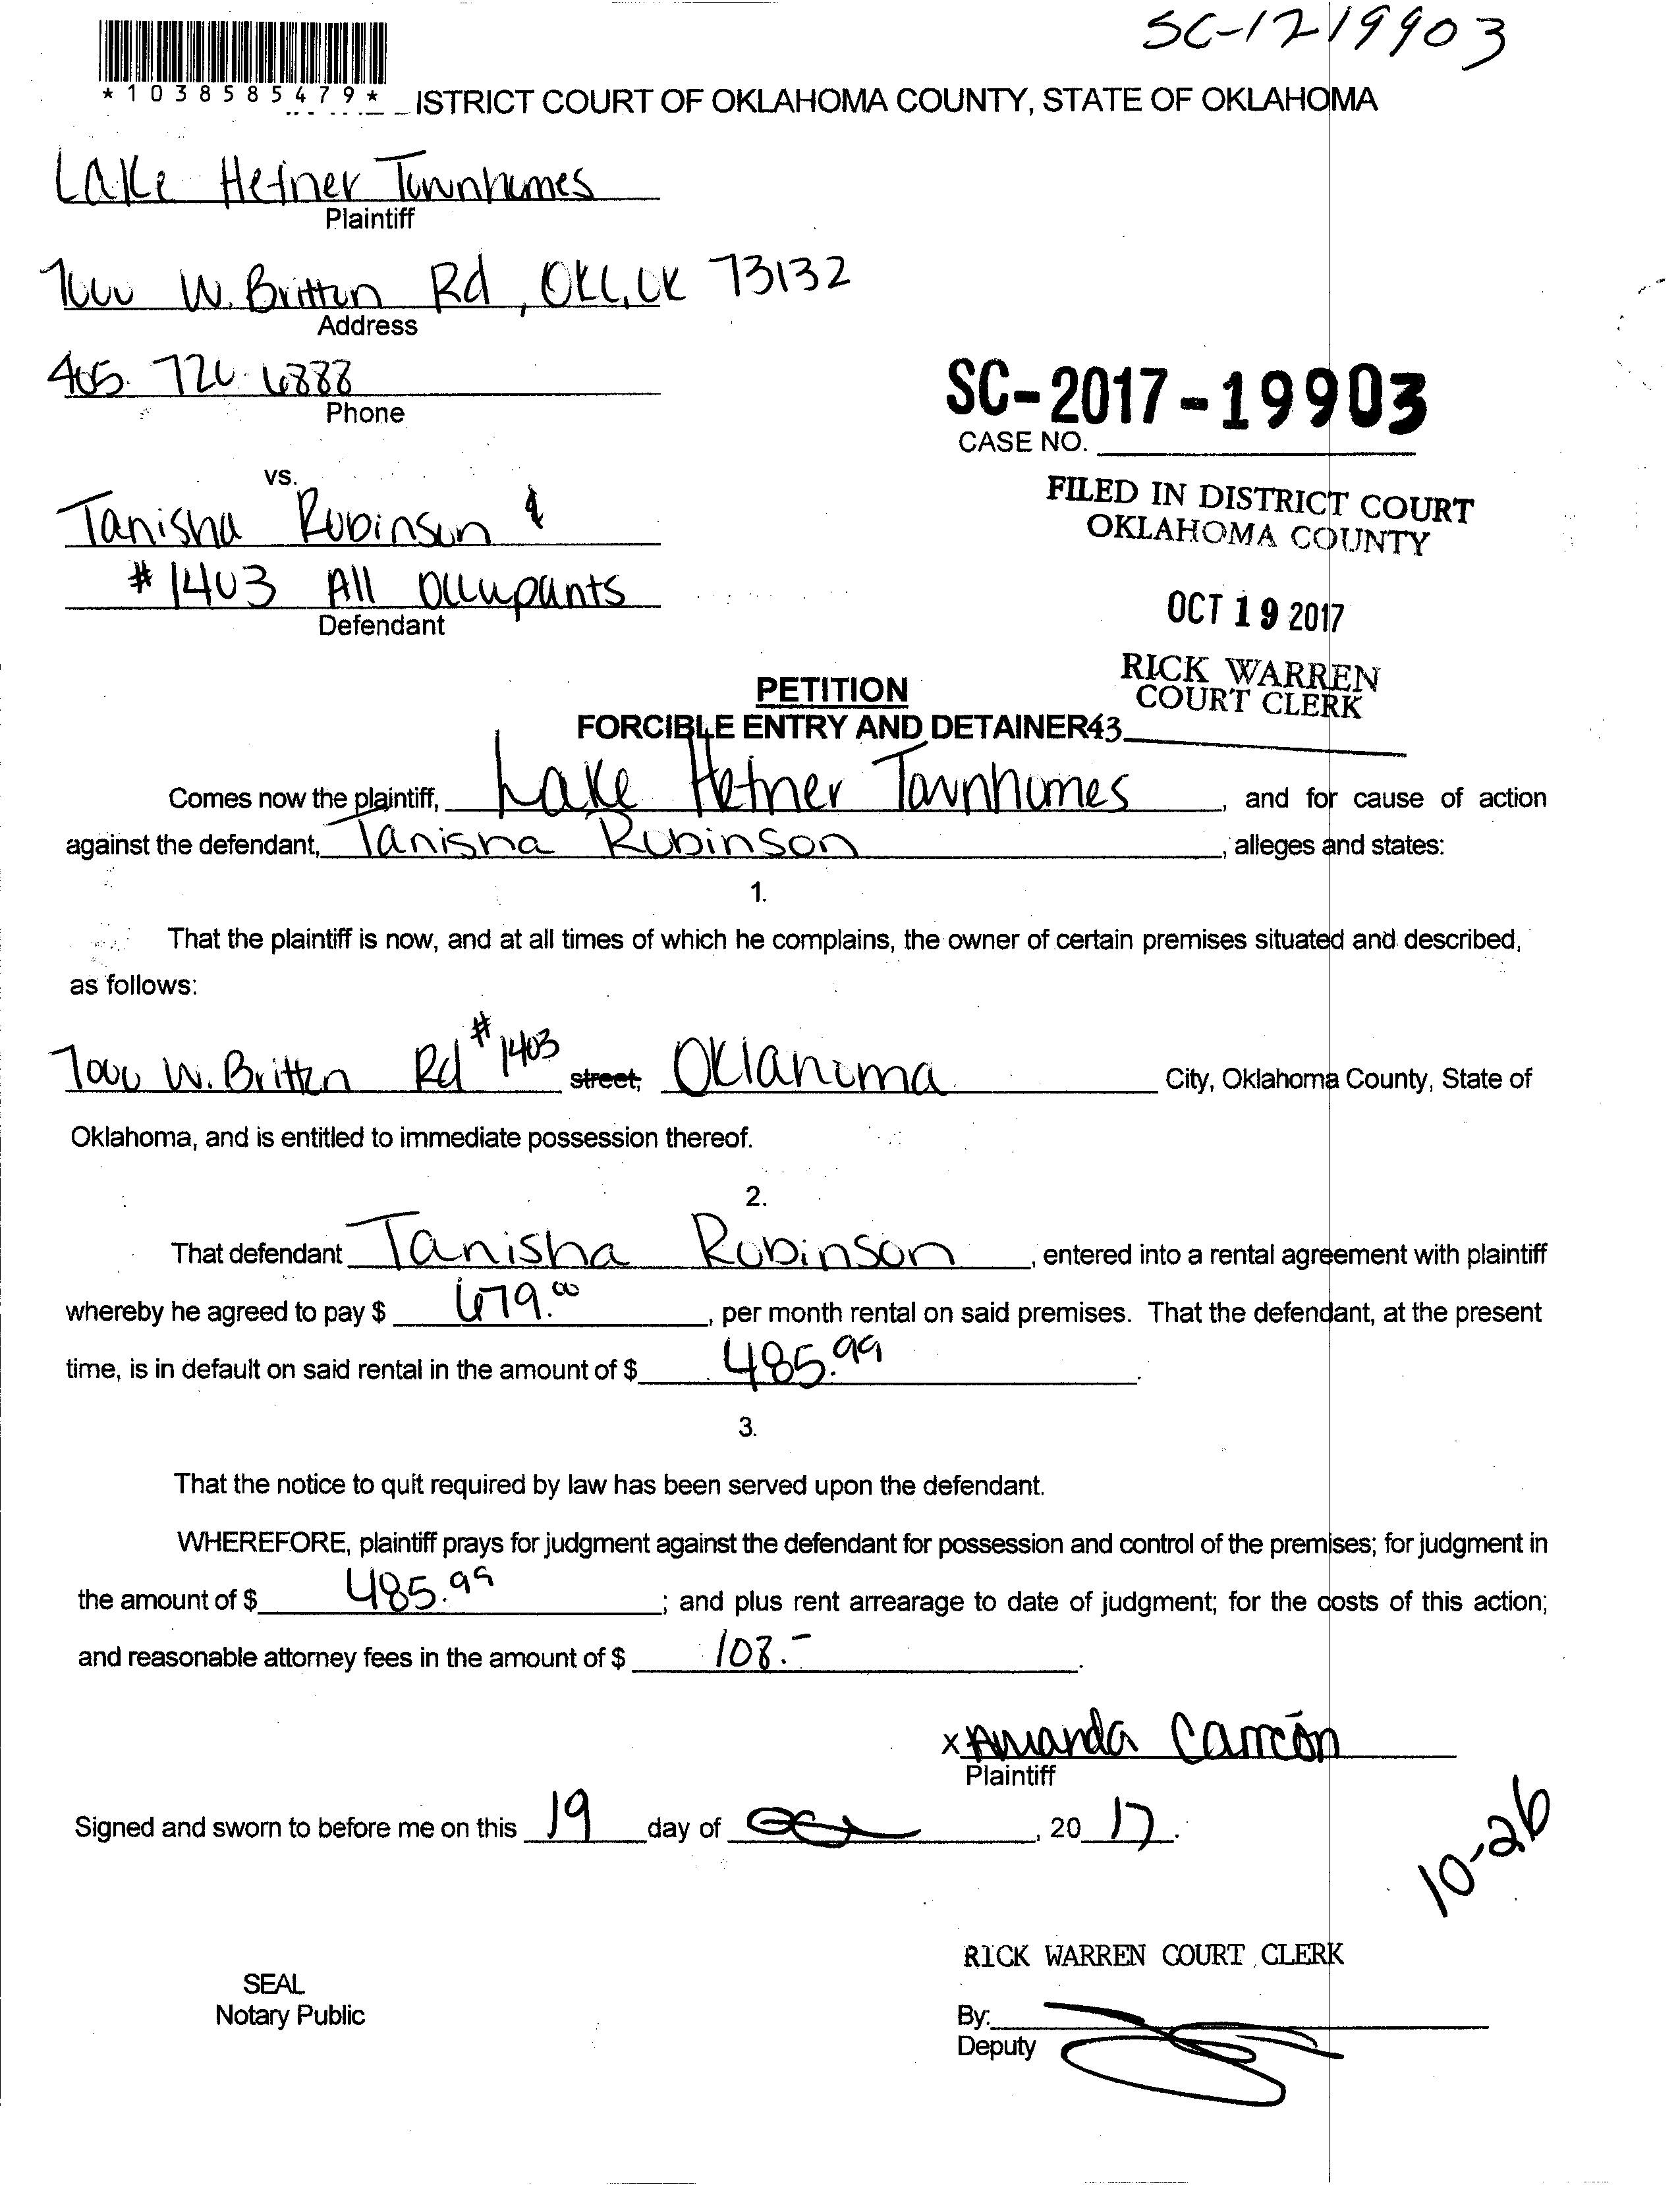 SC-17 19903
*1038585479*
ISTRICT COURT OF OKLAHOMA COUNTY, STATE OF OKLAHOMA
Lake Hefner Townhomes
Plaintiff
7000 W. Britton Rd, OKC, OK 73132
Address
405. 720. 6888
Phone
SC-2017-19903
CASE NO.
vs.
FILED IN DISTRICT COURT
OKLAHOMA COUNTY
Tanisha Robinson &
#1403 All Occupants
Defendant
OCT 19 2017
RICK WARREN
COURT CLERK
PETITION
FORCIBLE ENTRY AND DETAINER 43
Comes now the plaintiff, Lake Hefner Townhomes, and for cause of action
against the defendant, Tanisha Robinson, alleges and states:
1.
That the plaintiff is now, and at all times of which he complains, the owner of certain premises situated and described,
as follows:
7000 W. Britton Rd #1403 street, Oklahoma City, Oklahoma County, State of
Oklahoma, and is entitled to immediate possession thereof.
2.
That defendant Tanisha Robinson, entered into a rental agreement with plaintiff
whereby he agreed to pay $ 679.00, per month rental on said premises. That the defendant, at the present
time, is in default on said rental in the amount of $ 485.99.
3.
That the notice to quit required by law has been served upon the defendant.
WHEREFORE, plaintiff prays for judgment against the defendant for possession and control of the premises; for judgment in
the amount of $ 485.99; and plus rent arrearage to date of judgment; for the costs of this action;
and reasonable attorney fees in the amount of $ 108.-.
x Amanda Carreón
Plaintiff
Signed and sworn to before me on this 19 day of Oct, 2017.
10-26
RICK WARREN COURT CLERK
SEAL
Notary Public
By:
Deputy